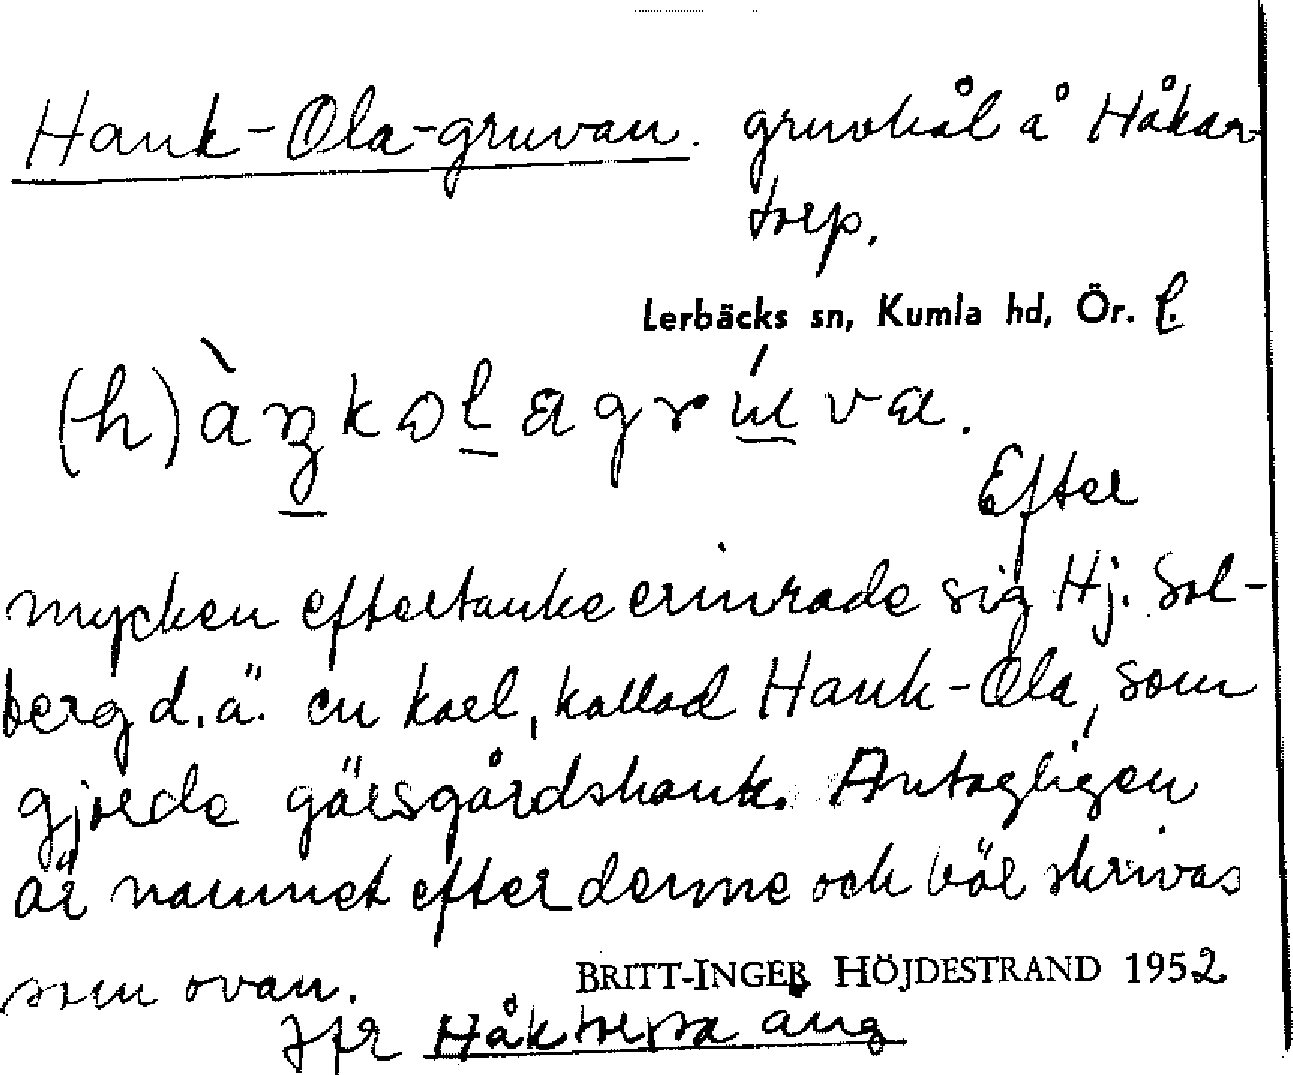 Hank-Ola-gruvan. gruvhål å Håkan-
torp.
Lerbäcks sn, Kumla hd, Ör. l.
Efter
mycken eftertanke erinrade sig Hj. Sol-
berg d.ä. en karl, kallad Hank-Ola, som
gjorde gärsgårdshank. Antagligen
är namnet efter denne och bör skrivas
som ovan.
BRITT-INGER HÖJDESTRAND 1952
Jfr äng